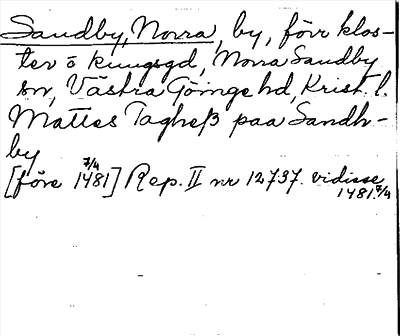 Sandby, Norra, by, förr klos-
ter o kungsgd, Norra Sandby
sn, Västra Göinge hd, Krist. l.
Mattes Tagheß paa Sandh-
by
[före 7/4 1481] Rep. II nr 12737. vidisse
1481 7/4